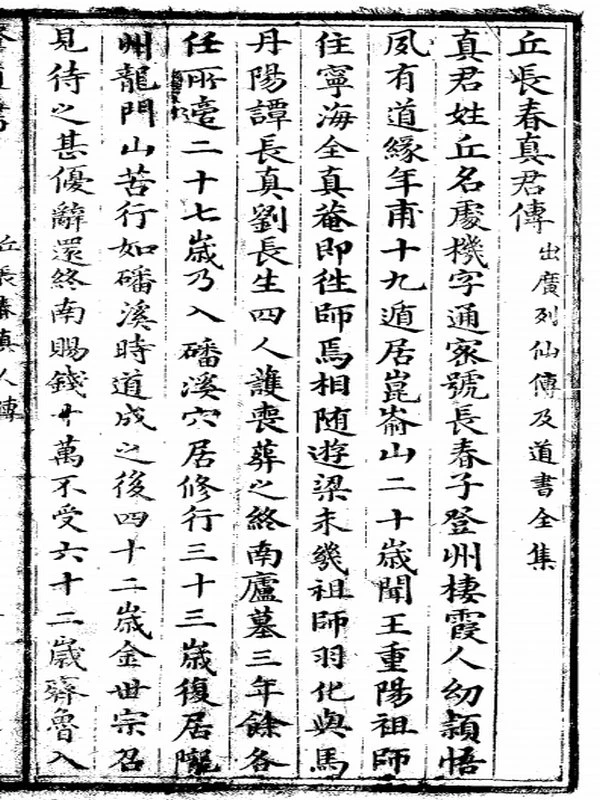 丘長春真君傳 出廣列仙傳及道書全集
真君姓丘名處機字通宻號長春子登州棲霞人幼頴悟
夙有道緣年甫十九遁居崑崳山二十歲聞王重陽祖師
住寧海全真菴即徃師焉相随遊梁未幾祖師羽化與馬
丹陽譚長真劉長生四人護喪葬之終南廬墓三年餘各
任所邊二十七歲乃入磻溪穴居修行三十三歲復居隴
州龍門山苦行如磻溪時道成之後四十二歲金世宗召
見待之甚優辭還終南賜錢十萬不受六十二歲齊魯入
丘長春真人傳